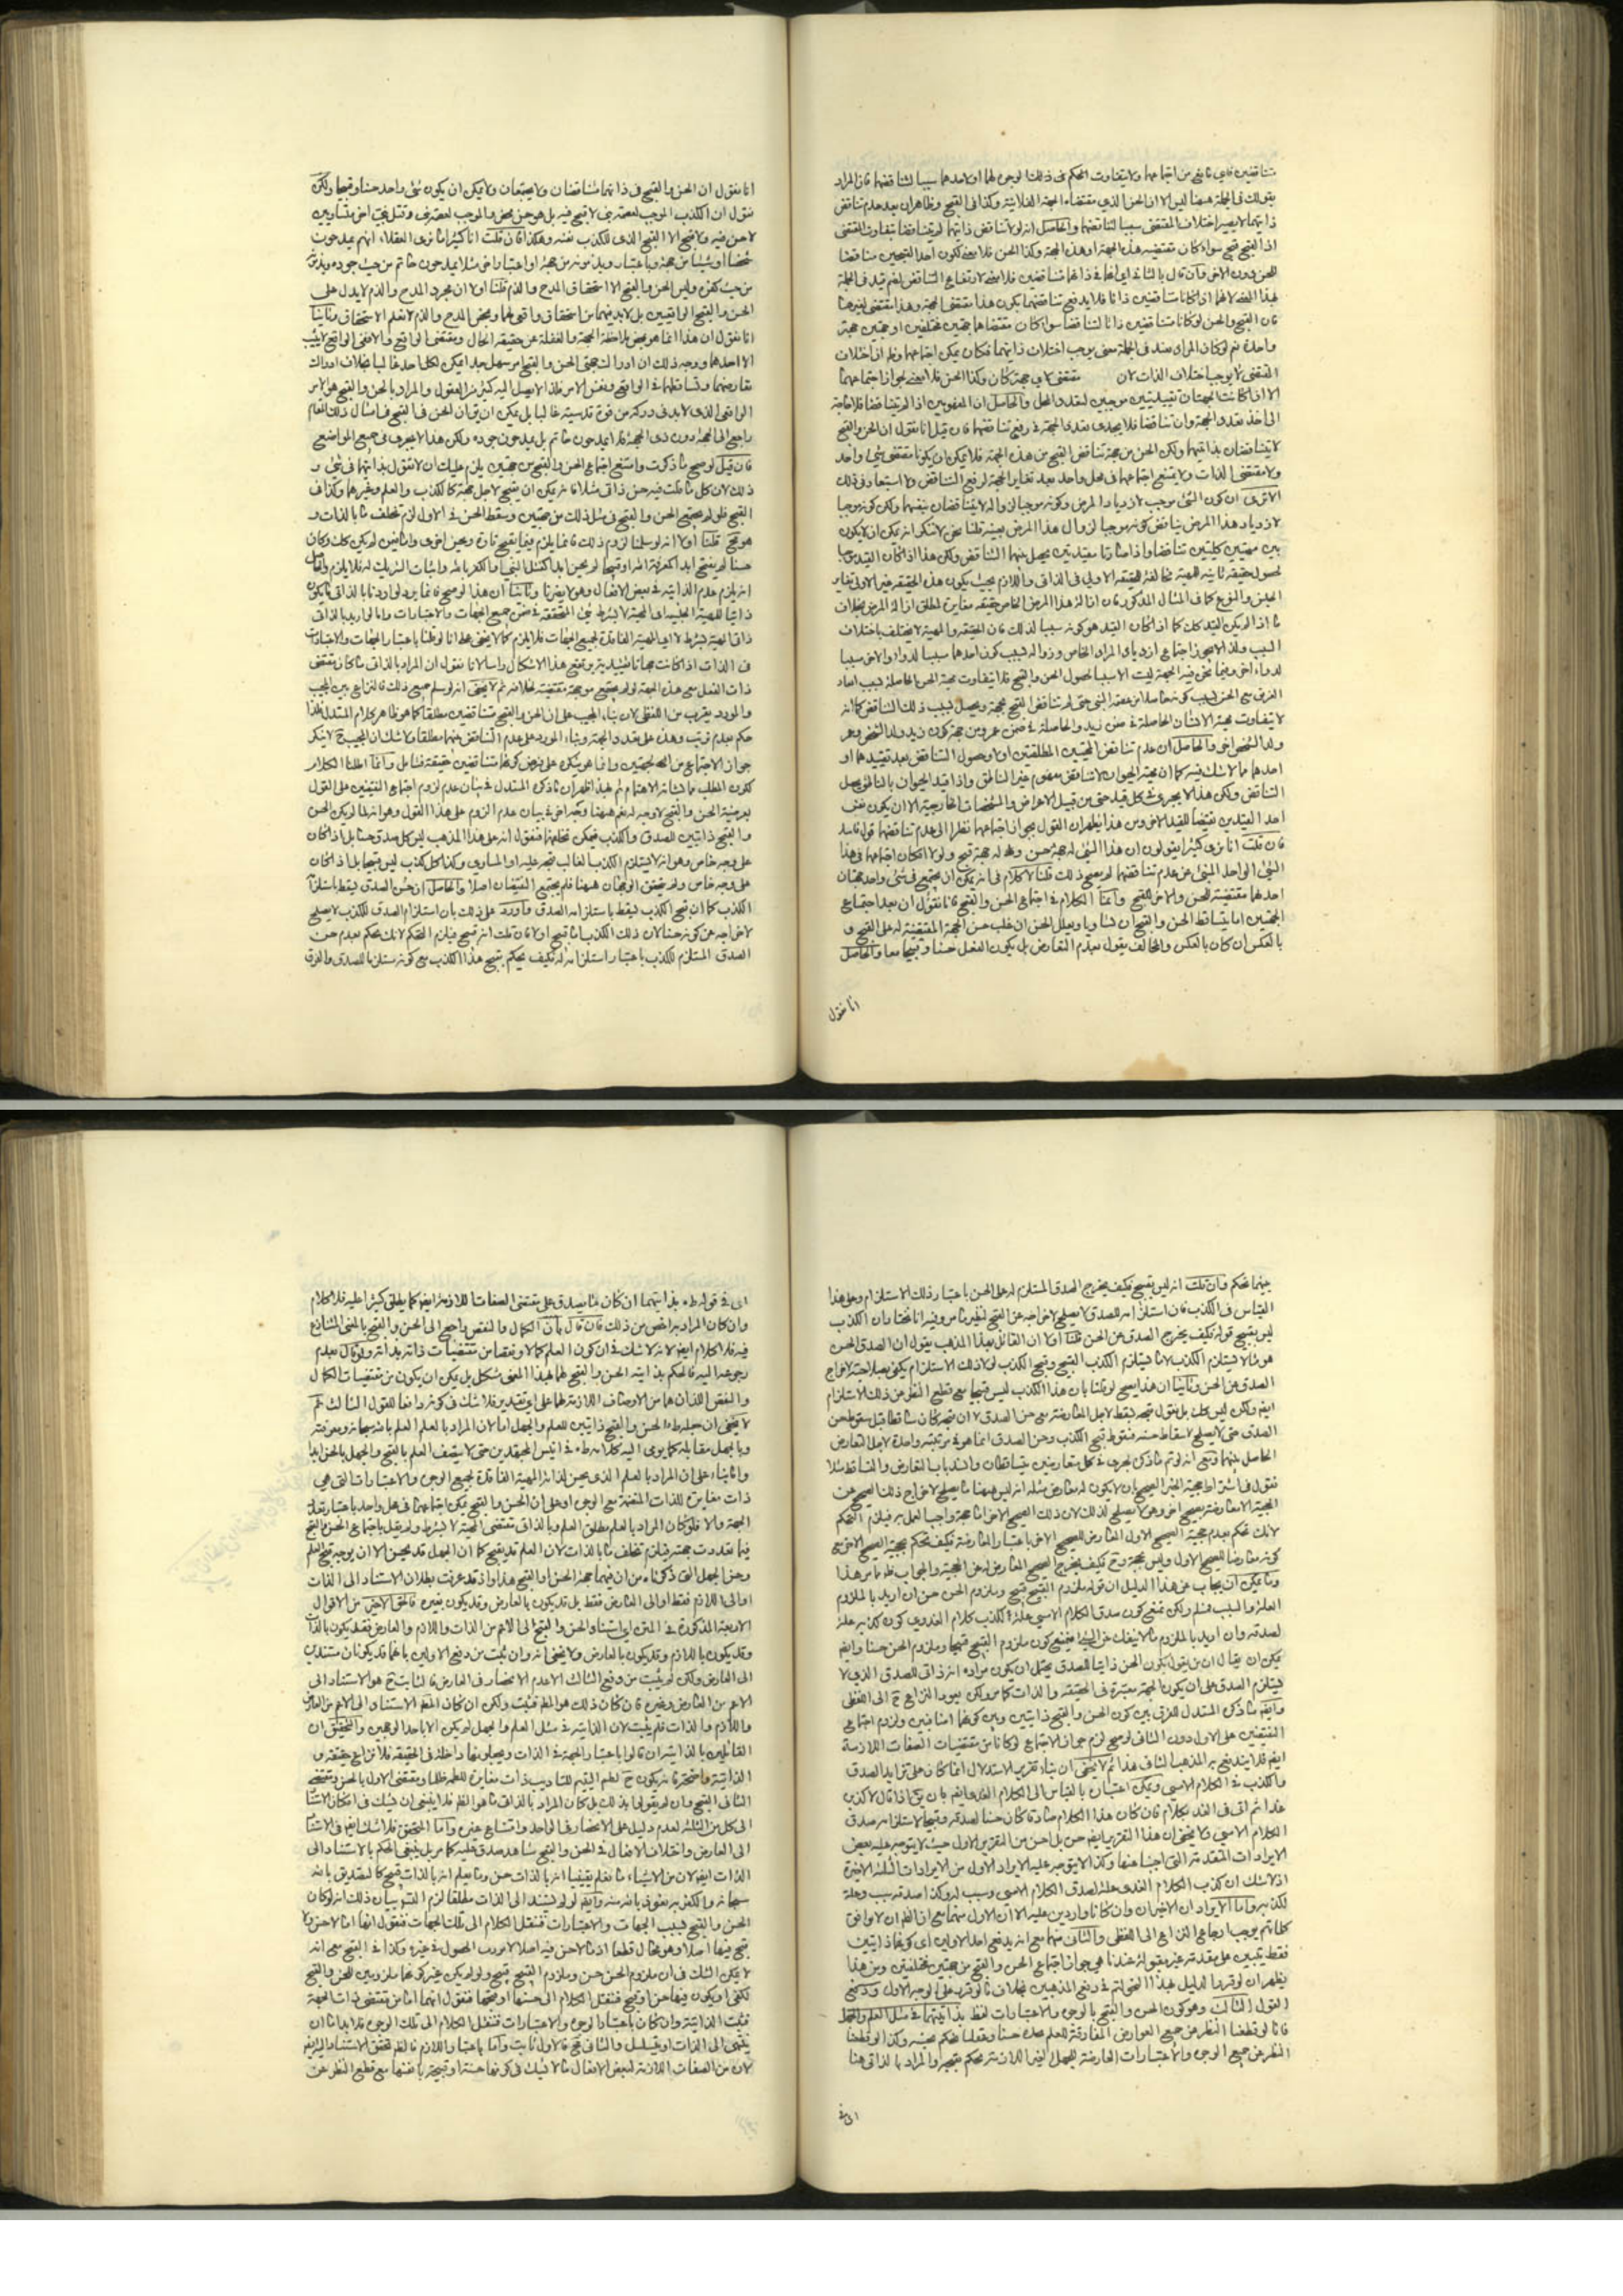 متناقضين فاي مانع من اجتماعهما ولا يتفاوت الحكم في ذلك
يقولك في الجملة هيهنا ليس الا ان الحسن الذي مقتضاه الجهة الفلانية وكذا في القبح وظاهر ان بعد عدم تناقض
ذاتهما لا يصير اختلاف المقتضى سببا لتناقضهما والحاصل انه لو لا تناقض ذاتهما لم يتناقضا بتفاوت المقتضى
اذ القبح قبح سواء كان تقتضيه هذه الجهة او هذه الجهة وكذا الحسن فلا معنى لكون احد القبحين مناقضا
للحسن دون الاخر
فان القبح والحسن لو كانا متناقضين ذاتا لتناقضا سواء كان مقتضاهما جهتين مختلفتين او جهتين جهة
واحدة
المقتضى لا يوجب اختلاف الذات لان مقتضى لاي جهة كان وكذا الحسن فلا معنى لجواز اجتماعهما
الا اذا كانت الجهتان تقييديتين موجبتين لتعدد المحل والحاصل ان المفهومين اذا لم يتناقضا فلا حاجة
الى اخذ تعدد الجهة وان تناقضا فلا يجدي تعدد الجهة في رفع تناقضهما فان قيل انا نقول ان الحسن والقبح
لا يتناقضان بذاتهما ولكن الحسن من جهة تناقض القبح من هذه الجهة فلا يمكن ان يكونا مقتضى شيء واحد
ولا مقتضى الذات ولا يمتنع اجتماعهما في محل واحد بعد تغاير الجهة لرفع التناقض ولا استبعاد في ذلك
الا ترى ان كون الشيء موجب لازدياد المرض وكونه موجبا لزواله لا يتناقضان بنفسهما ولكن كونه موجبا
لازدياد هذا المرض يناقض كونه موجبا لزوال هذا المرض بعينه قلنا نحن لا ننكر انه يمكن ان لا يكون
بين مهيتين كليتين تناقضا واذا صارتا مقيدتين يحصل بينهما التناقض ولكن هذا اذا كان القيد موجبا
لحصول حقيقة ثانية للمهية مخالفة للحقيقة الاولى في الذاتي واللازم بحيث يكون هذه الحقيقة غير الاولى
كما في المثال المذكور فان ازالة هذا المرض الخاص حقيقة مغايرة لمطلق ازالة المرض بخلاف
ما اذا لم يكن القيد كك كما اذا كان القيد هو كونه سببا لذلك فان الحقيقة والمهية لا يختلف باختلاف
السبب ولذا لا يجوز اجتماع ازدياد المرض الخاص وزواله بسبب كون احدهما مسببا لدواء والاخر مسببا
لدواء اخر وفيما نحن فيه الجهة ليست الا سببا لحصول الحسن والقبح فلا يتفاوت مهية الحسن الحاصلة بسبب
لا يتفاوت مهية الانسان الحاصلة في ضمن زيد والحاصلة في ضمن عمرو من جهة كون زيد ولد الشخص وعمرو
ولد الشخص اخر والحاصل ان عدم تناقض المهيتين المطلقتين او لا وحصول التناقض بعد تقييدهما او
احدهما مما لا شك فيه كما ان مهية الحيوان لا تناقض مفهوم غير الناطق واذا قيد الحيوان بالناطق يحصل
التناقض ولكن هذا لا يجري في كل قيد حتى من قبيل الاعراض والمشخصات الخارجية الا ان يكون نفس
احد القيدين نقيضا للقيد الاخر ومن هذا يظهر ان القول بجواز اجتماعهما نظرا الى عدم تناقضهما قول فاسد
فان قلت انا نرى كثيرا يقولون ان هذا الشيء له جهة حسن وله جهة قبح ولو لا امكان اجتماعهما في هذا
الشيء الواحد المبني على عدم تناقضهما لم يصح ذلك قلنا لا كلام في انه يمكن ان يجتمع في شيء واحد جهتان
احدهما مقتضية للحسن والاخر للقبح وانما الكلام في اجتماع الحسن والقبح فانا نقول ان بعد اجتماع
الجهتين اما يتساقط الحسن والقبح ان تساويا ويحصل الحسن ان غلب حسن الجهة المقتضية له على القبح و
بالعكس ان كان بالعكس والمخالف يقول بعدم التعارض بل يكون الفعل حسنا وقبيحا معا والحاصل
انا نقول
انا نقول ان الحسن والقبح في ذاتهما متناقضان ولا يجتمعان ولا يمكن ان يكون شيء واحد حسنا وقبيحا ولكن
نقول ان الكذب الموجب لعصمة نبي لا قبح فيه بل هو حسن محض والموجب لعصمة نبي وقتل نبي اخر متساويين
لا حسن فيه ولا قبح الا القبح الذي للكذب نفسه وهكذا فان قلت انا كثيرا ما نرى العقلاء انهم يمدحون
شخصا او شيئا من جهة وباعتبار ويذمونه من جهة او اعتبار اخر مثلا يمدحون حاتم من حيث جوده ويذمونه
من حيث كفره وليس الحسن والقبح الا استحقاق المدح والذم قلنا اولا ان مجرد المدح والذم لا يدل على
الحسن والقبح الواقعيين بل لابد فيهما من استحقاق واقعي لهما وبمحض المدح والذم لا نعلم الاستحقاق وثانيا
انا نقول ان هذا انما هو بمحض ملاحظة الجهة والغفلة عن حقيقة الحال ومقتضى الواقع والا ففي الواقع لا يثبت
الا احدهما ووجه ذلك ان ادراك جهتي الحسن والقبح امر سهل جدا يمكن لكل احد غالبا بخلاف ادراك
تعارضهما وتساقطهما في الواقع ونفس الامر فلذا لا يصل اليه كثير من العقول والمراد بالحسن والقبح هو الامر
الواقعي الذي لابد في دركه من قوة قدسية غالبا بل يمكن ان يقال ان الحسن في القبح في امثال ذلك المقام
راجع الى الجهة دون ذي الجهة فلا يمدحون حاتم بل يمدحون جوده ولكن هذا لا يجري في جميع المواضع
فان قيل لو صح ما ذكرت وامتنع اجتماع الحسن والقبح من جهتين يلزم عليك ان لا تقول بذاتيتهما في شيء و
ذلك لان كل ما قلت فيه حسن ذاتي مثلا فانه يمكن ان يقبح لاجل جهة كالكذب والعلم وغيرهما وكذا في
القبح فلو لم يجتمع الحسن والقبح في مثل ذلك من جهتين وسقط الحسن في الاول لزم تخلف ما بالذات و
هو قبح قلنا اولا انه لو سلمنا لزوم ذلك فانما يلزم فيما يقبح تارة ويحسن اخرى
يعنى انه لو سلم صح ذلك فالنزاع بين المجيب
والمورد يقرب من اللفظي لان بناء المجيب على ان الحسن والقبح متناقضين مطلقا كما هو ظاهر كلام المستدل فلذا
حكم بعدم ترتب وهذه على تعدد الجهة وبناء المورد على عدم التناقض بينهما مطلقا ولا شك ان المجيب ح لا ينكر
جواز الاجتماع من جهتين وانما هو ينكره على فرض كونهما متناقضين حقيقة فتامل وانما اطلنا الكلام
لكون المطلب مما يشان الاهتمام ثم بهذا اظهر ان ما ذكره المستدل في بيان عدم لزوم اجتماع النقيضين على القول
بعرضية الحسن والقبح لا وجه له نعم هيهنا وجه اخر في بيان عدم الزوم على هذا القول وهو انه لما لم يكن الحسن
والقبح ذاتيين للصدق والكذب فيمكن تخلفهما فنقول انه على هذا المذهب ليس كل صدق حسنا بل اذا كان
على وجه خاص وهو انه لا يستلزم الكذب الغالب قبحه عليه او المساوي وكذا كل كذب ليس قبيحا بل اذا كان
على وجه خاص ولم يتحقق الوجهان هيهنا فلم يجتمع النقيضان اصلا والحاصل ان حسن الصدق يسقط باستلزامه
الكذب كما ان قبح الكذب يسقط باستلزامه الصدق واورد على ذلك بان استلزام الصدق للكذب لا يصلح
لاخراجه عن كونه حسنا لان ذلك الكذب اما قبيح او لا فان قلت انه قبيح فيلزم التحكم لانك تحكم بعدم حسن
الصدق المستلزم للكذب باعتبار استلزامه له فكيف يحكم بقبح هذا الكذب مع كونه مستلزما للصدق والفرق
بينهما تحكم وان قلت انه ليس بقبيح فكيف يخرج الصدق المستلزم له على الحسن باعتبار ذلك الاستلزام وعلى هذا
القياس في الكذب فان استلزامه للصدق لا يصلح لاخراجه عن القبح لنظير ما مر وفيه انا نختار ان الكذب
ليس بقبيح قوله فكيف يخرج الصدق عن الحسن قلنا اولا ان القائل بهذا المذهب يقول ان الصدق الحسن
هو ما لا يستلزم الكذب
الصدق عن الحسن وثانيا ان هذا يصح لو قلنا بان هذا الكذب ليس قبيحا مع قطع النظر عن ذلك الاستلزام
ايضا ولكن ليس كك بل نقول قبحه يسقط لاجل المعارضة مع حسن الصدق لا ان قبحه كان ساقطا قبل سقوط حسن
الصدق حتى لا يصلح لاسقاط حسنه فسقوط قبح الكذب وحسن الصدق انما هو في مرتبة واحدة لاجل التعارض
الحاصل بينهما
نقول في اشتراط حجية الخبر الصحيح بان لا يكون له معارض مثله انه ليس هيهنا ما يصلح لاخراج ذلك الصحيح عن
الحجية الا معارضة صحيح اخر وهو لا يصلح لذلك لان ذلك الصحيح الاخر اما حجة واجب العمل به فيلزم التحكم
لانك تحكم بعدم حجية الصحيح الاول المعارض للصحيح الاخر باعتبار المعارضة فكيف تحكم بحجية الصحيح الاخر مع
كونه معارضا للصحيح الاول وليس بحجة وح فكيف يخرج الصحيح المعارض له عن الحجية والجواب ظهر مما مر هذا
ومما يمكن ان يجاب عن هذا الدليل ان قوله ملزوم القبيح قبيح وملزوم الحسن حسن ان اريد بالملزوم
العلة والسبب فمسلم ولكن نمنع كون صدق الكلام الامسي علة لكذب كلام الغدي
لصدقه وان اريد بالملزوم ما لا ينفك عن الشيء فيمنع كون ملزوم القبيح قبيحا وملزوم الحسن حسنا وايضا
يمكن ان يقال ان من يقول بكون الحسن ذاتيا للصدق يحتمل ان يكون مراده انه ذاتي للصدق الذي لا
يستلزم الصدق على ان يكون الجهة معتبرة في الحقيقة والذات كما مر ولكن يعود النزاع ح الى اللفظي
وايضا ما ذكره المستدل للفرق بين كون الحسن والقبح ذاتيين وبين كونهما اضافيين ولزوم اجتماع
النقيضين على الاول دون الثاني لو صح لزم جواز الاجتماع لو كانا من مقتضيات الصفات اللازمة
ايضا فلا يندفع به المذهب الثاني هذا ثم لا يخفى ان بناء تقرير الاستدلال انما كان على تزايد الصدق
والكذب في الكلام الامسي ويمكن اعتباره بالقياس الى الكلام الغدي ايضا بان يقال اذا قال لاكذبن
غدا ثم اتى في الغد بكلام فان كان هذا الكلام صادقا كان حسنا لصدقه وقبيحا لاستلزامه صدق
الكلام الامسي ولا يخفى ان هذا التقرير ايضا حسن بل احسن من التقرير الاول حيث لا يتوجه عليه بعض
الايرادات المتقدمة التي اجبنا عنها وكذا لا يتوجه عليه الايراد الاول من الايرادات الثلثة الاخيرة
اذ لا شك ان كذب الكلام الغدي علة لصدق الكلام الامسي وسبب له وكذا صدقه سبب وعلة
لكذبه واما الايرادان الاخيران وان كانا واردين عليه الا ان الاول منهما مع ان الظاهر ان لا يوافق
كلماتهم يوجب ارجاع النزاع الى اللفظي والثاني منهما مع انه يدفع احد الاولين اي كونهما ذاتيين
فقط يبتني على مقدمة غير مقبولة عندنا هي جواز اجتماع الحسن والقبح من جهتين مختلفتين ومن هذا
يظهر ان لو قرروا الدليل بهذا النحو لتم في دفع المذهبين بخلاف ما لو قرر على الوجه الاول
القول الثالث وهو كون الحسن والقبح بالوجوه والاعتبارات لفظ بذاتيتهما في مثل العلم والجهل
فانا لو قطعنا النظر عن جميع العوارض المفارقة للعلم عده حسنا وعقلنا يحكم بحسنه وكذا لو قطعنا
النظر عن جميع الوجوه والاعتبارات العارضة للجهل الغير اللازمة يحكم بقبحه والمراد بالذاتي هنا
اى في
اى في قوله ره بذاتيتهما ان كان ما يصدق على مقتضى الصفات اللازمة ايضا كما يطلق كثيرا عليه فلا كلام
وان كان المراد به اخص من ذلك فان قال بان الكمال والنقص راجع الى الحسن والقبح بالمعنى المتنازع
فيه فلا كلام ايضا لانه لا شك في ان كون العلم كمالا ونقصا من مقتضيات ذاته بديهة ولو قال بعدم
رجوعه اليه فالحكم بذاتية الحسن والقبح لهما بهذا المعنى مشكل بل يمكن ان يكون من مقتضيات الكمال
والنقص اللذان هما من الاوصاف اللازمة لهما على اي تقدير فلا شك في كونه دافعا للقول الثالث ثم
لا يخفى ان جعله ره الحسن والقبح ذاتيين للعلم والجهل اما لان المراد بالعلم العلم بالله سبحانه ومعرفته
وبالجهل مقابله كما يومي اليه كلامه ره في انيس المجتهدين حتى لا يتصف العلم بالقبح والجهل بالحسن ابدا
واما بناء على ان المراد بالعلم الذي يحسن لذاته المهية الفاقدة لجميع الوجوه والاعتبارات التي هي
ذات مغايرة للذات المتصفة مع الوجوه او على ان الحسن والقبح يمكن اجتماعهما في محل واحد باعتبار تعدد
الجهة والا فلو كان المراد بالعلم مطلق العلم وبالذاتي مقتضى المهية لا بشرط ولم يقل باجتماع الحسن والقبح
فيما تعددت جهته فيلزم تخلف ما بالذات لان العلم قد يقبح كما ان الجهل قد يحسن الا ان يوجه قبح العلم
وحسن الجهل الى ما ذكرناه من ان فيهما جهة الحسن او القبح هذا واذ قد عرفت بطلان الاستناد الى الذات
او الى اللازم فقط او الى العارض فقط بل قد يكون بالعارض وقد يكون بغيره فالحق الاخير من الاقوال
الاربعة المذكورة في المتن اي استناد الحسن والقبح الى الاعم من الذات واللازم والعارض فقد يكون بالذات
وقد يكون باللازم وقد يكون بالعارض ولا يخفى انه وان ثبت من دفع الاولين بانهما قد يكونان مستندين
الى العارض ولكن لم يثبت من دفع الثالث الا عدم الانحصار في العارض فالثابت ح هو الاستناد الى
الاعم من العارض وغيره فان كان ذلك هو المطلوب فثبت ولكن ان كان المطلوب الاستناد الى الاعم من العارض
واللازم والذات فلم يثبت لان الذاتية في مثل العلم والجهل لم يكن الا باحد الوجهين والتحقيق ان
القائلين بالذاتية ان قالوا باعتبار الجهة في الذات وجعلوها داخلة في الحقيقة فلا نزاع حقيقة و
الذاتية واضحة فانه يكون ح لطم اليتيم للتاديب ذات مغايرة للطمه ظلما ومقتضى الاول بالحسن ومقتضى
الثاني القبح وان لم يقولوا بذلك بل كان المراد بالذاتي ما هو الظاهر فلا ينبغي ان يشك في امكان الاستناد
الى كل من الثلثة لعدم دليل على الانحصار في الواحد وامتناع غيره واما التحقق فلا شك ايضا في الاستناد
الى العارض واختلاف الافعال في الحسن والقبح شاهد صدق عليه كما مر بل ينبغي الحكم بالاستناد الى
الذات ايضا لان من الاشياء ما نعلم يقينا انه بالذات حسن وما نعلم انه بالذات قبيح كالتصديق بالله
سبحانه والكفر به نعوذ بالله منه وايضا لو لم يستند الى الذات مطلقا لزم التسلسل بيان ذلك انه لو كان
الحسن والقبح بسبب الجهات والاعتبارات فننقل الكلام الى تلك الجهات فنقول انها اما لا حسن ولا
قبح فيها اصلا وهو محال قطعا اذ ما لا حسن فيه اصلا لا يوجب الحصول في غيره وكذا في القبح مع انه
لا يمكن الشك في ان ملزوم الحسن حسن وملزوم القبيح قبيح ولو لم يكن غير كونهما ملزومين للحسن والقبح
لكفى او يكون فيها حسن او قبح فننقل الكلام الى حسنها او قبحها فنقول انهما اما من مقتضى ذات الجهة
فثبت الذاتية وان كان باعتبار الوجوه والاعتبارات فننقل الكلام الى تلك الوجوه فلابد اما ان
ينتهي الى الذات او يتسلسل والثاني قبح فالاول ثابت واما باعتبار اللازم فالظاهر تحقق الاستناد اليه ايضا
لان من الصفات اللازمة لبعض الافعال ما لا يشك في كونها حسنة او قبيحة بانفسها مع قطع النظر عن